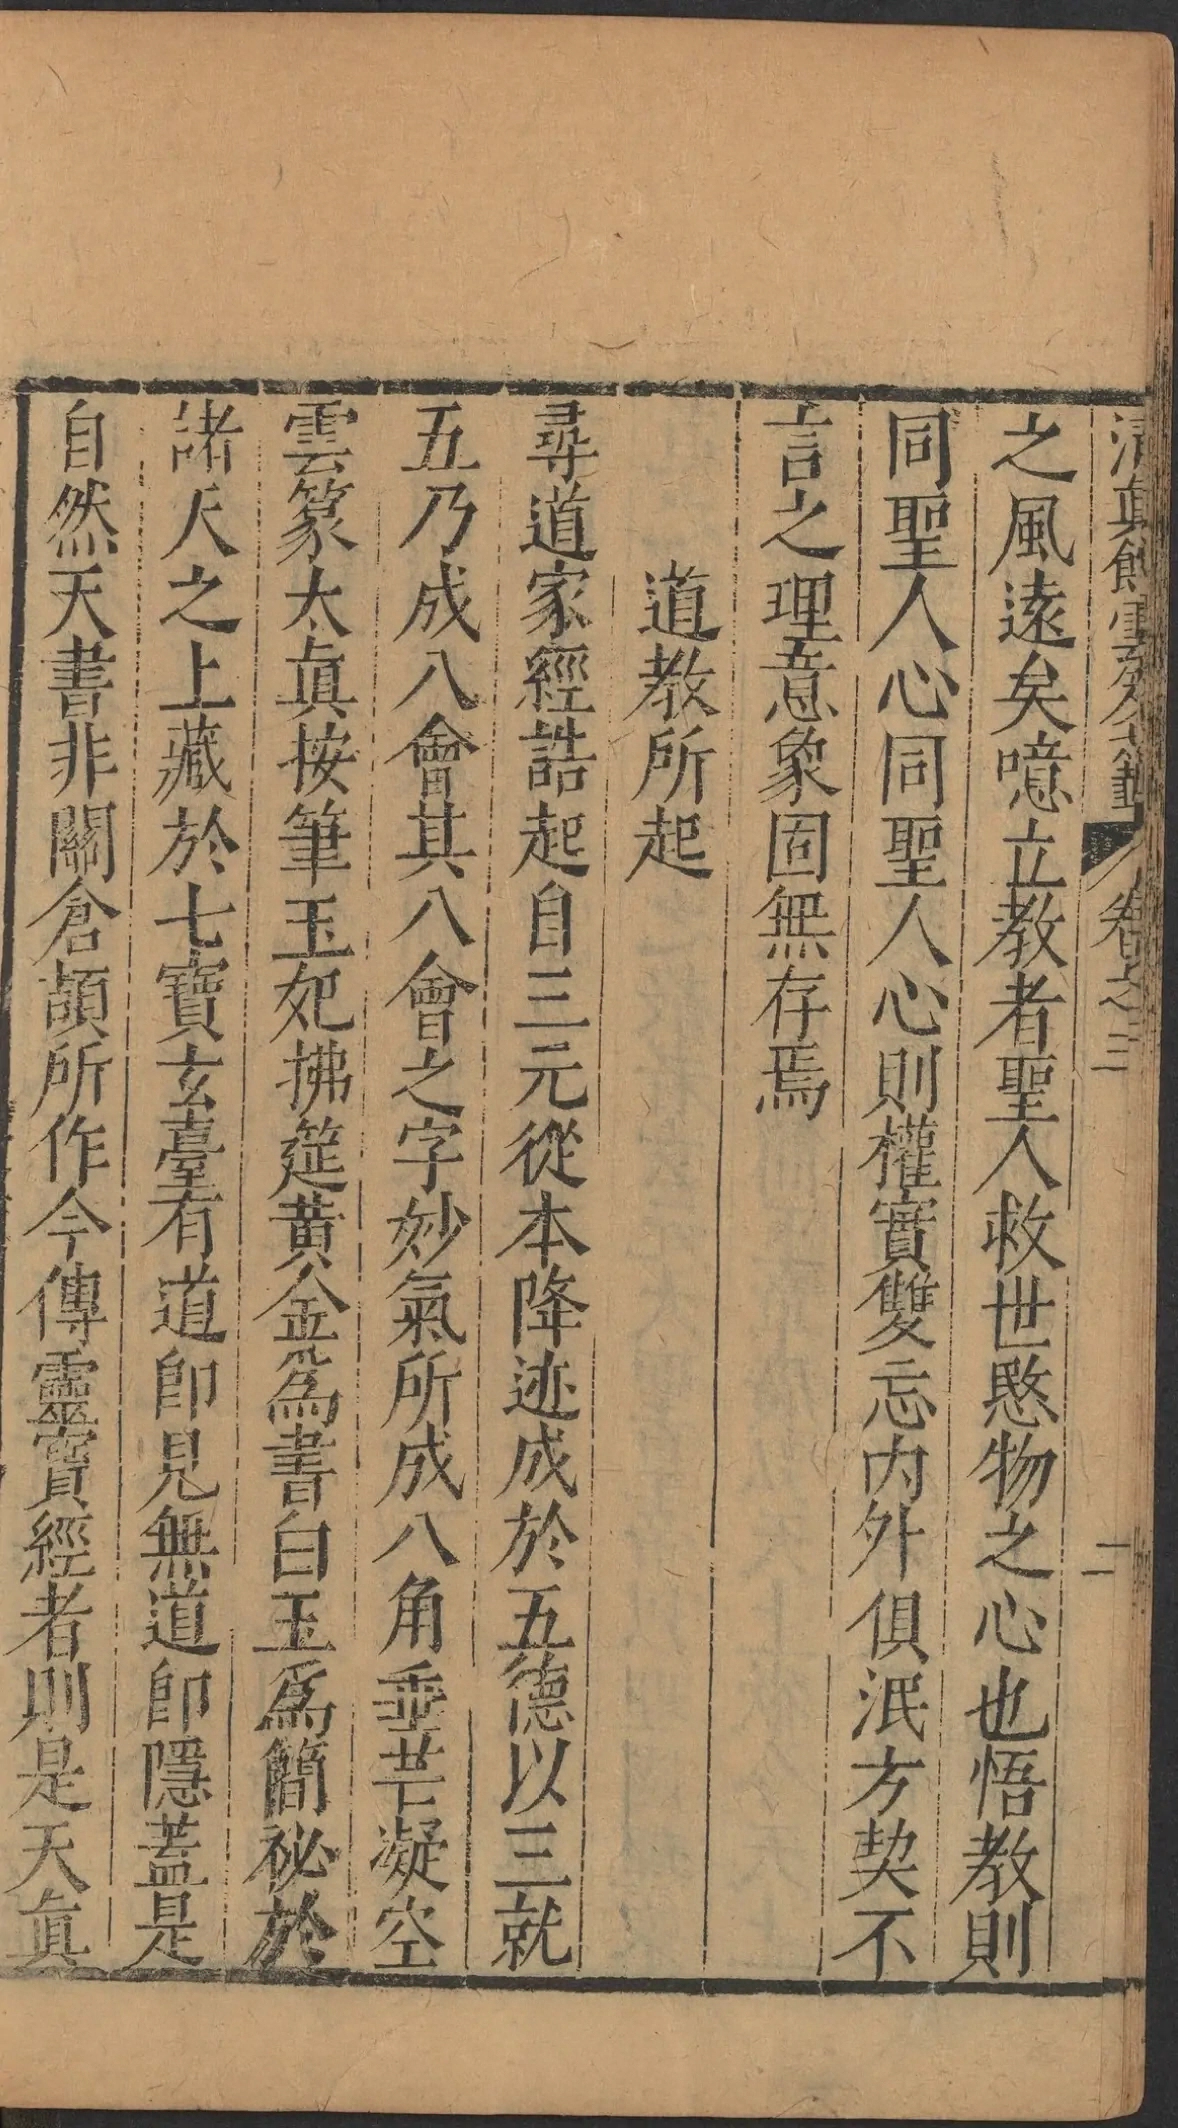 清眞館雲笈七籤 卷之三 二
之風遠矣噫立教者聖人救世愍物之心也悟教則
同聖人心同聖人心則權實雙忘内外俱泯方契不
言之理意象固無存焉
道教所起
尋道家經誥起自三元從本降迹成於五德以三就
五乃成八會其八會之字妙氣所成八角垂芒凝空
雲篆太眞按筆玉妃拂筵黄金爲書白玉爲簡祕於
諸天之上藏於七寶玄臺有道即見無道即隱蓋是
自然天書非關倉頡所作今傳靈寶經者則是天眞